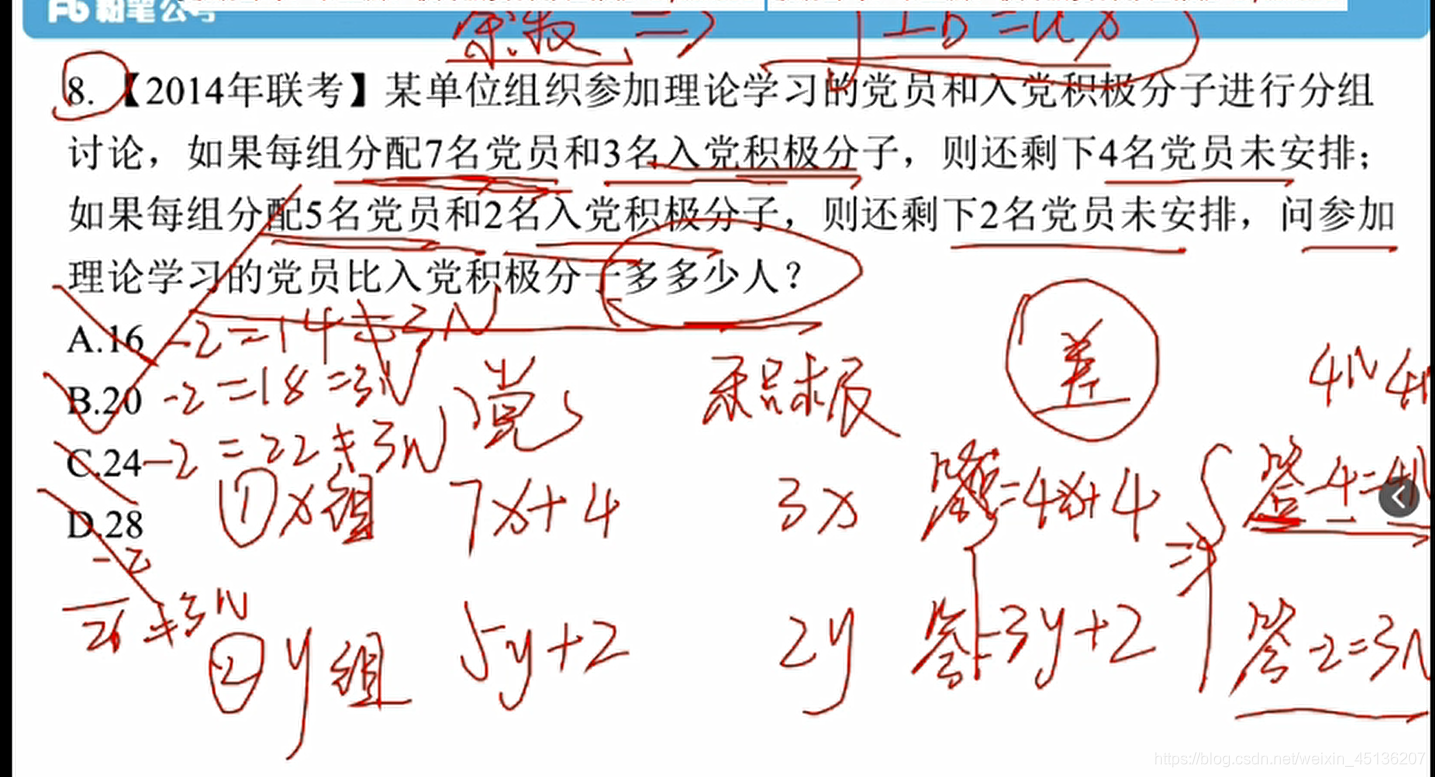 粉笔公考
余数 =>
8.【2014年联考】某单位组织参加理论学习的党员和入党积极分子进行分组
讨论，如果每组分配7名党员和3名入党积极分子，则还剩下4名党员未安排；
如果每组分配5名党员和2名入党积极分子，则还剩下2名党员未安排，问参加
理论学习的党员比入党积极分子多多少人？
A.16 -2=14≠3N
B.20 -2=18=3N
C.24 -2=22≠3N
D.28
-2
26≠3N
党 积极 差 4N
①x组 7x+4 3x 答=4x+4 => 答-4=4N
②y组 5y+2 2y 答=3y+2 答-2=3N
https://blog.csdn.net/weixin_45136207